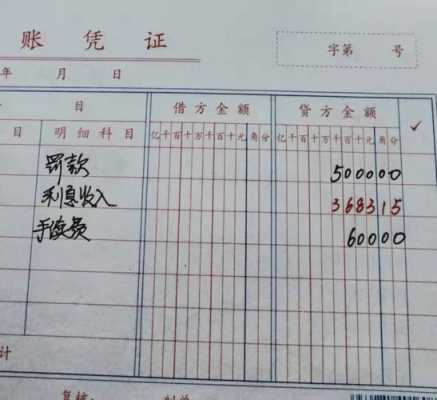 账 凭 证
字第 号
年 月 日
目 借方金额 贷方金额 ✓
目 明细科目 亿千百十万千百十元角分 亿千百十万千百十元角分
罚款 500000
利息收入 368315
手续费 60000
计
复核: 制单